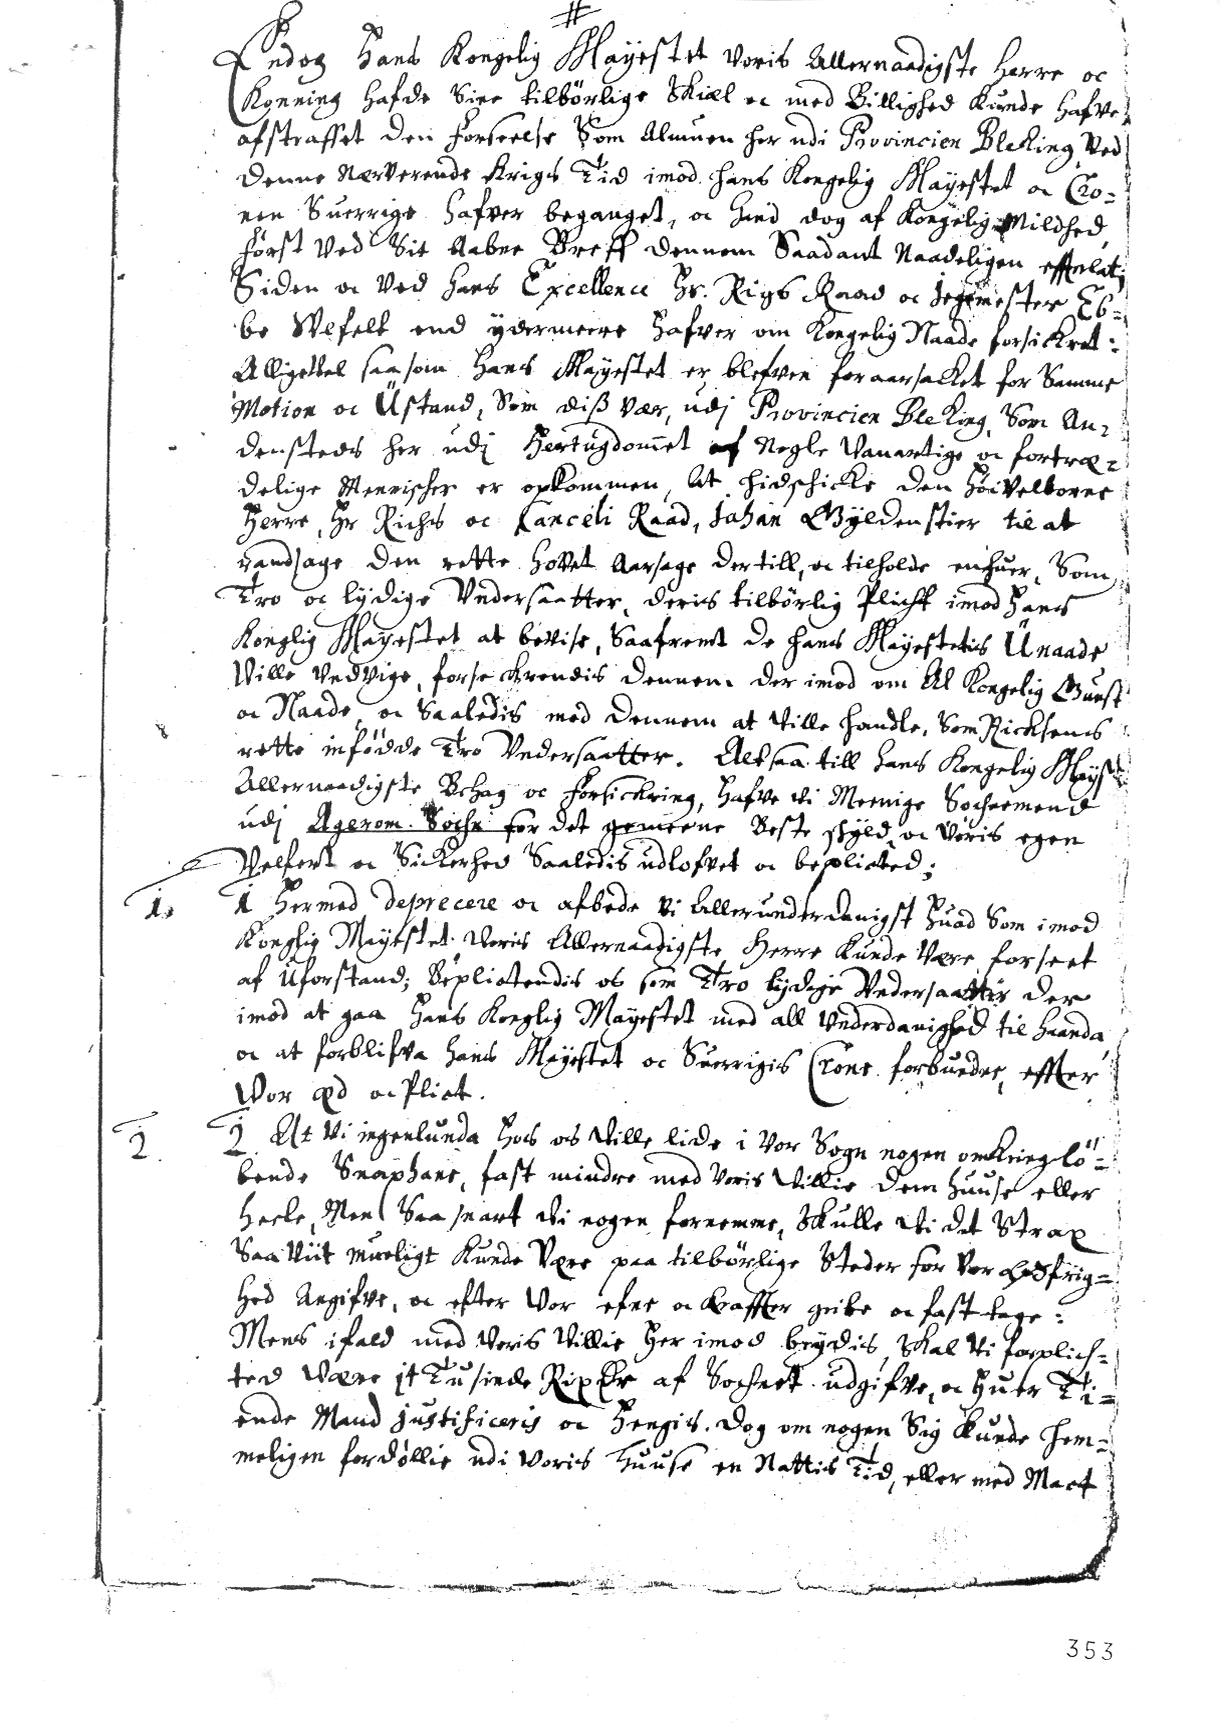 #
Endog Hans Kongelig Mayestet Voris Allernaadigste Herre oc
Konning Hafde Sine tilbörlige Skiæl oc med Billighed Kunde Hafve
afstraffet den Forseelse Som Almuen her udi Provincien Bleking Ved
denne Nærverende Krigs Tid imod hans Kongelig Mayestet oc Cro=
nen Suerrige hafver beganget, oc hend dog af Kongelig Mildhed
først Ved Sit Aabne Breff dennem Saadant Naadeligen efftelat;
Siden oc Ved hans Excellence Hr. Rigs Raad oc Jegemester Eb=
be Ulfelt end ydermeere hafver om Kongelig Naade forsickret:
Alligevel saasom Hans Mayestet er blefven foraarsacket for Samme
Motion oc Üstand, Som diß vær, udj Provincien Bleking, Som An=
densteds her udj Hertugdommet af Nogle Vanartige oc fortræ=
delige Mennischer er opkommen, At hidschicke den Höivelborne
Herre, Hr Richs oc Canceli Raad, Johan Gyldenstier til at
randsage den rette Hovet Aarsage dertill, oc tilholde enhuer, Som
Tro oc lydige Undersaatter, deris tilbörlig Plicht imod Hans
Konglig Mayestet at bevise, Saafremt de hans Mayestetis Ünaade
Ville Undvige, forseckrendis dennem der imod om Al Kongelig Gunst
oc Naade, oc Saaledis med dennem at Ville handle, Som Ricksens
rette infödde Tro Undersaatter. Altsaa till hans Kongelig Mayst
Allernaadigste Behag oc Forsickring, Hafve Vi Meenige Sochnemend
udj Agerom Sochn for det gemeene Beste skyld, oc Voris egen
Velfert oc Sickerhed Saaledis udlofvet oc beplicted;
1. 1 Hermed deprecere oc afbede Vi Allerunderdanigst Huad Som imod
Konglig Mayestet Voris Allernaadigste Herre Kunde Være forseet
af Uforstand; Beplictendis os som Tro lydige Undersaatter der
imod at gaa Hans Konglig Mayestet med all Underdanighed til Haanda
oc at forblifva Hans Mayestet oc Suerrigis Crone forbundne, effter
Vor Æd oc Plict.
2. 2 At Vi ingenlunda Hos os Ville lide i Vor Sogn nogen omkring lö=
bende Snaphane, fast mindre med Voris Villie dem Huuse eller
Heele, Men Saa snart Vi nogen fornemme, Skulle Vi det Strax
Saa Vit mueligt Kunde Være paa tilbörlige Steder for Vor Øfrig=
Hed Angifve, oc efter Vor efne oc Kraffter gribe oc fast tage:
Mens ifald med Voris Villie Her imod brydis, Skal Vi forplich=
ted Være it Tusinde Rix Dr af Sochnet udgifve, oc Huer Ti=
ende Mand justificeris oc Hengis. Dog om nogen Sig Kunde hem=
meligen fordöllie udi Voris Huuse en Nattis Tid, eller med Mact
353